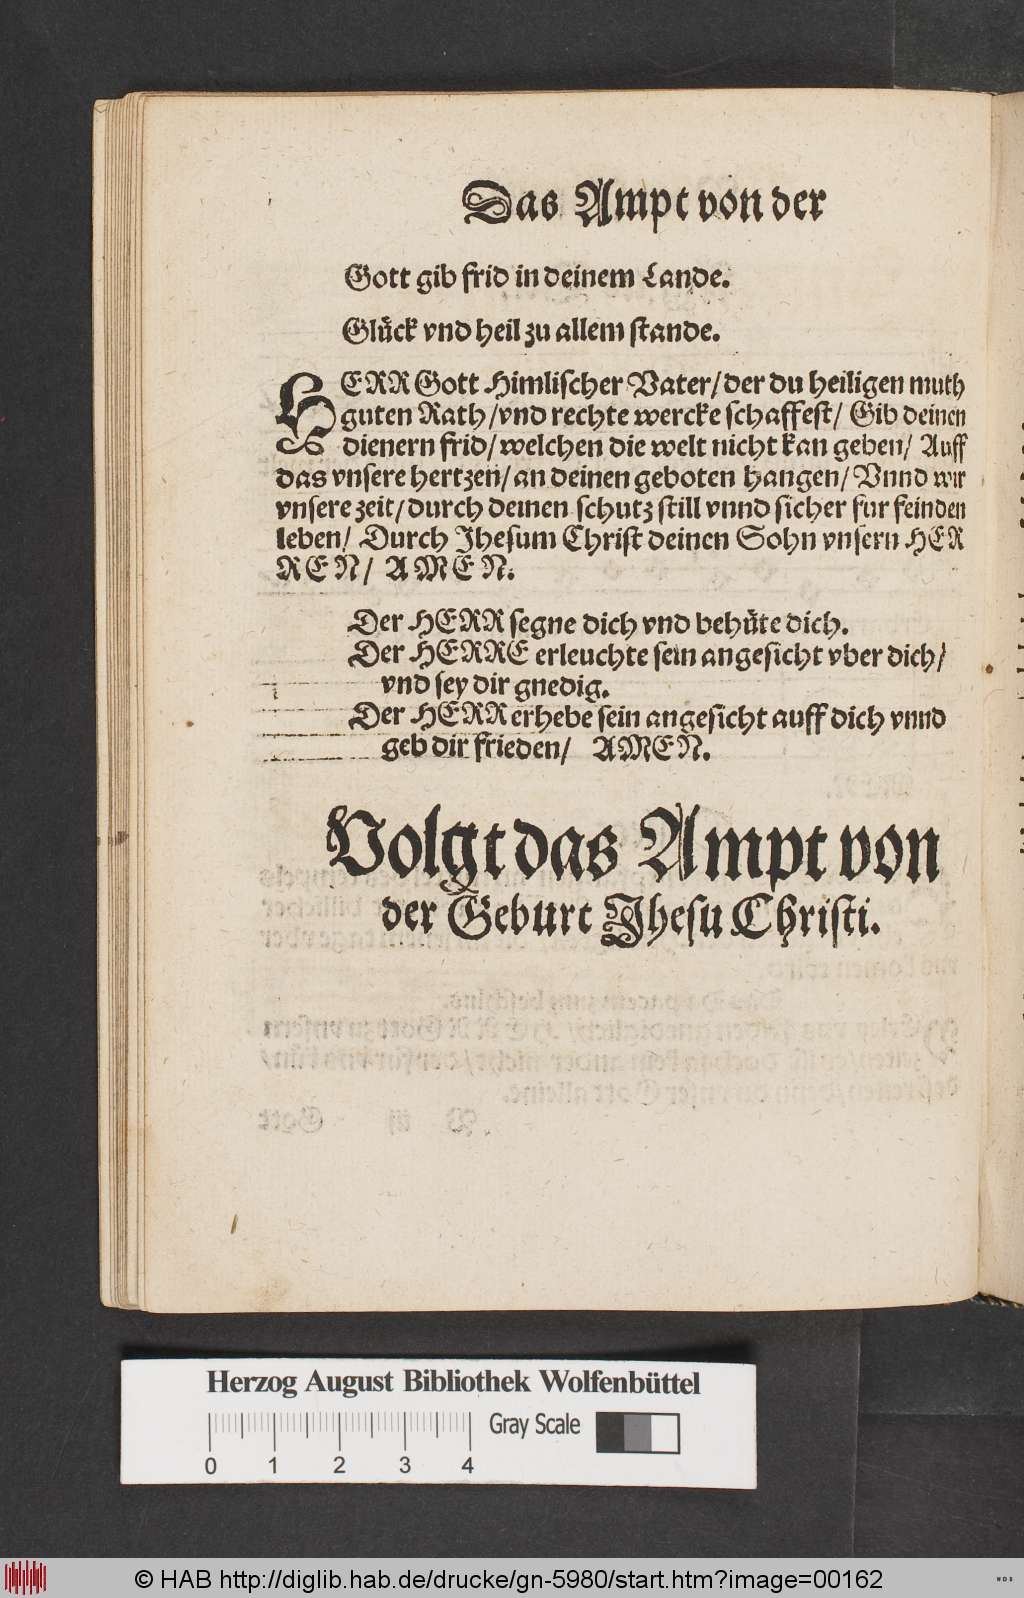 Das Ampt von der
Gott gib frid in deinem Lande.
Gluͤck vnd heil zu allem stande.
HERR Gott Himlischer Vater/ der du heiligen muth
guten Rath/ vnd rechte wercke schaffest/ Gib deinen
dienern frid/ welchen die welt nicht kan geben/ Auff
das vnsere hertzen/ an deinen geboten hangen/ Vnnd wir
vnsere zeit/ durch deinen schutz still vnnd sicher fur feinden
leben/ Durch Jhesum Christ deinen Sohn vnsern HER
REN/ AMEN.
Der HERR segne dich vnd behuͤte dich.
Der HERRE erleuchte sein angesicht vber dich/
vnd sey dir gnedig.
Der HERR erhebe sein angesicht auff dich vnnd
geb dir frieden/ AMEN.
Volgt das Ampt von
der Geburt Jhesu Christi.
Herzog August Bibliothek Wolfenbüttel
Gray Scale
0 1 2 3 4
© HAB http://diglib.hab.de/drucke/gn-5980/start.htm?image=00162